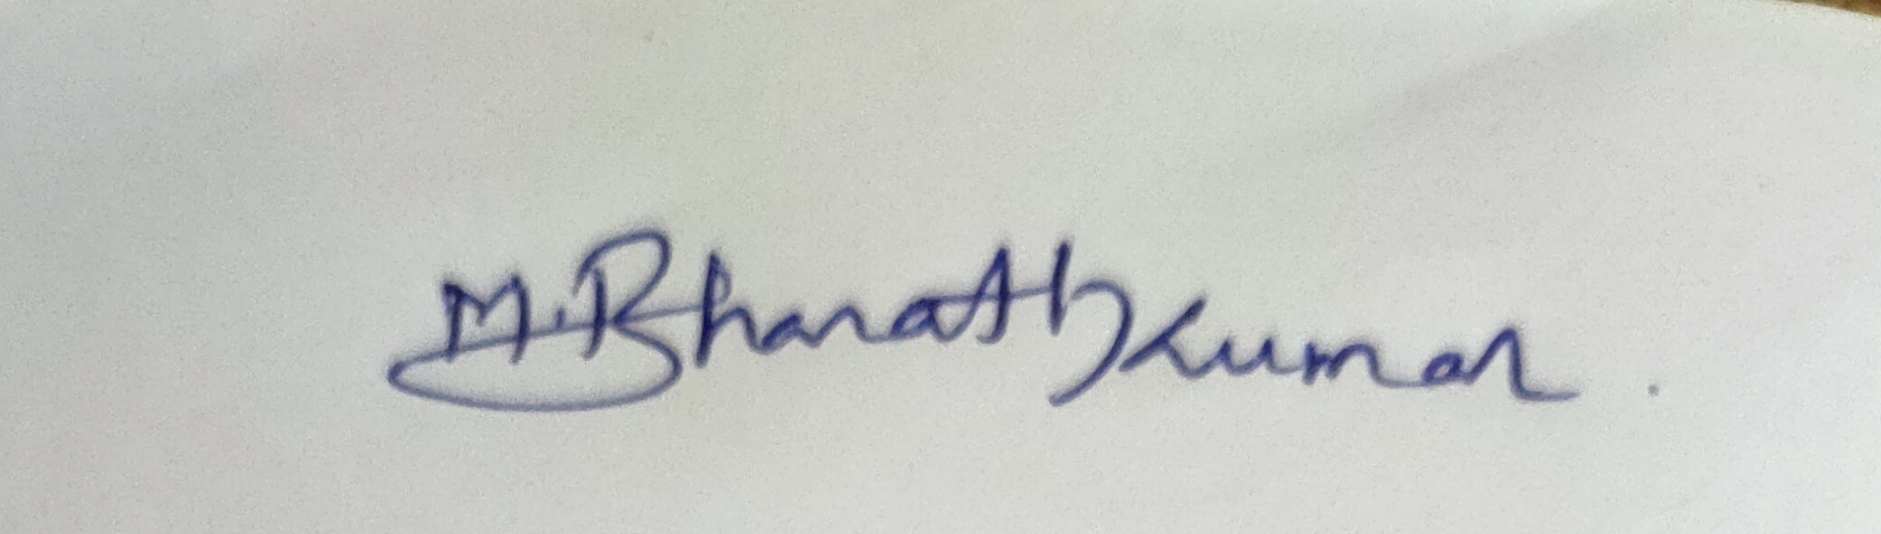 M.Bharath Kumar.